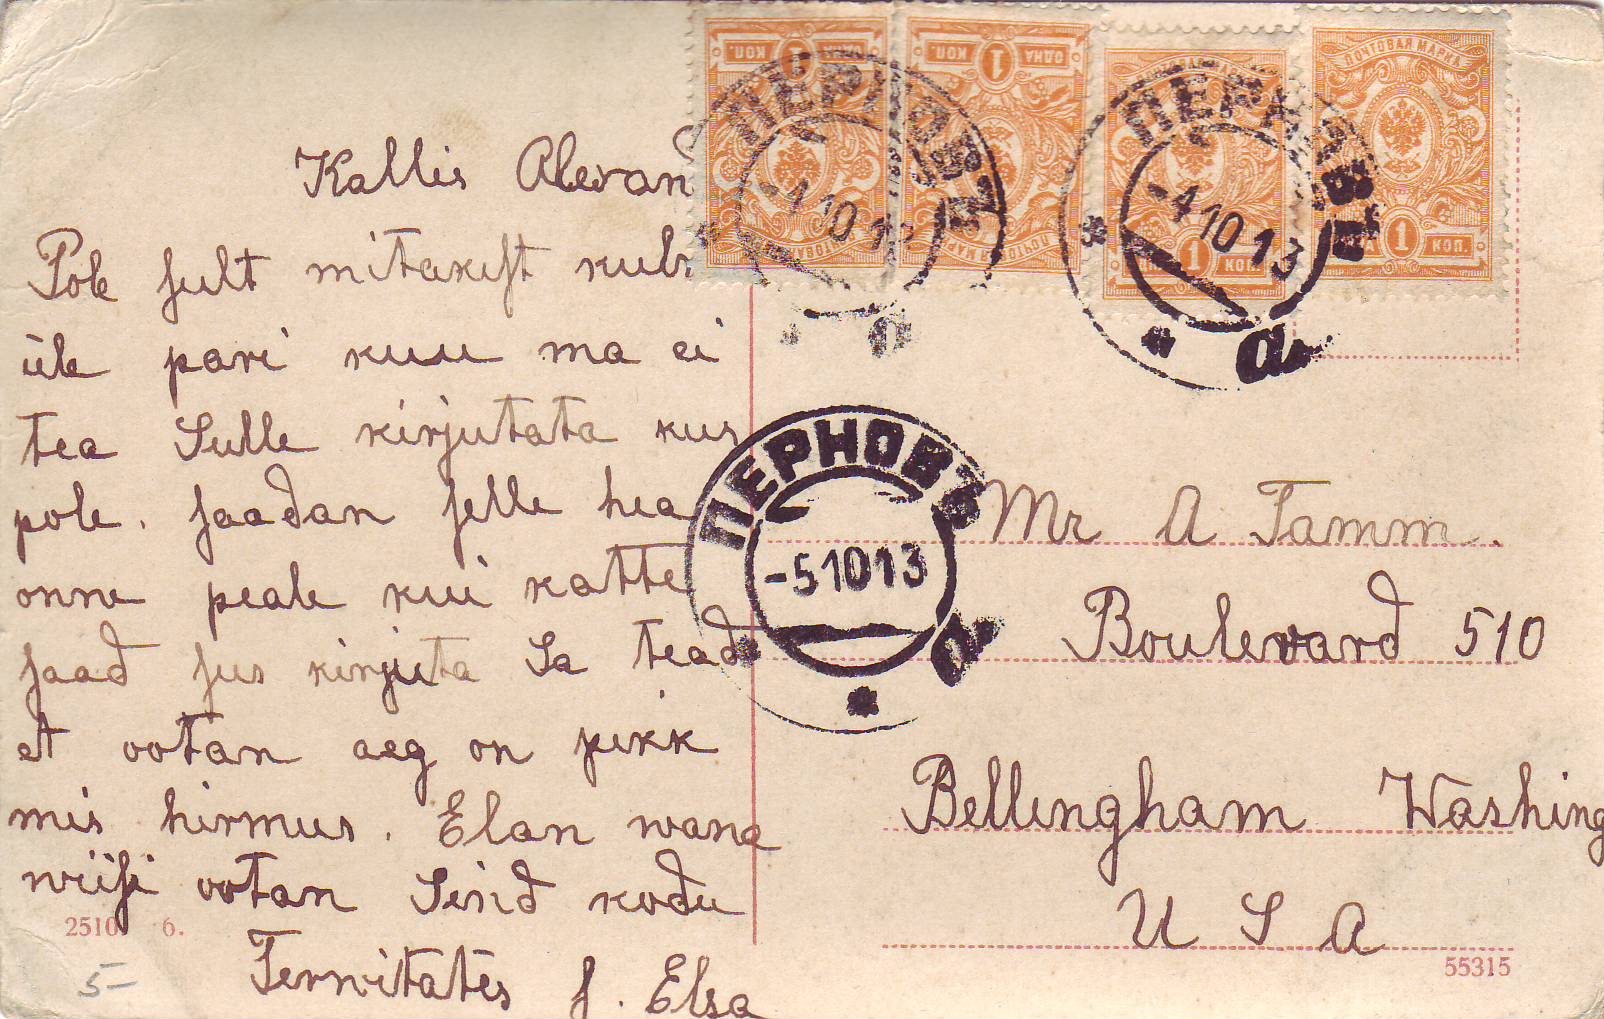 Kallis Alexan
Pole sult mitakist kul
üle pari kuu ma ei
tea Sulle kirjutata kus
pole. saadan selle hea
onne peale kui katte
saad sus kirjuta Sa tead
et ootan aeg on pikk
mis hirmus. Elan wana
wiisi ootan Sind kodu
Terwitates s. Elsa
2510 6.
5-
ОДНА 1 КОП.
ОДНА 1 КОП.
1 КОП.
ПОЧТОВАЯ МАРКА
1 КОП.
ПЕРНОВЪ
-4 10 1
а
ПЕРНОВЪ
-4 10 13
а
ПЕРНОВЪ
-5 10 13
а
Mr A Tamm.
Boulevard 510
Bellingham Washing
U S A
55315